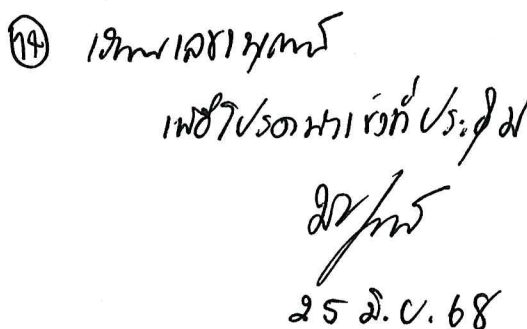 74 เรียนเลขานุการ
เพื่อโปรดนำเข้าที่ประชุม
25 มิ.ย. 68